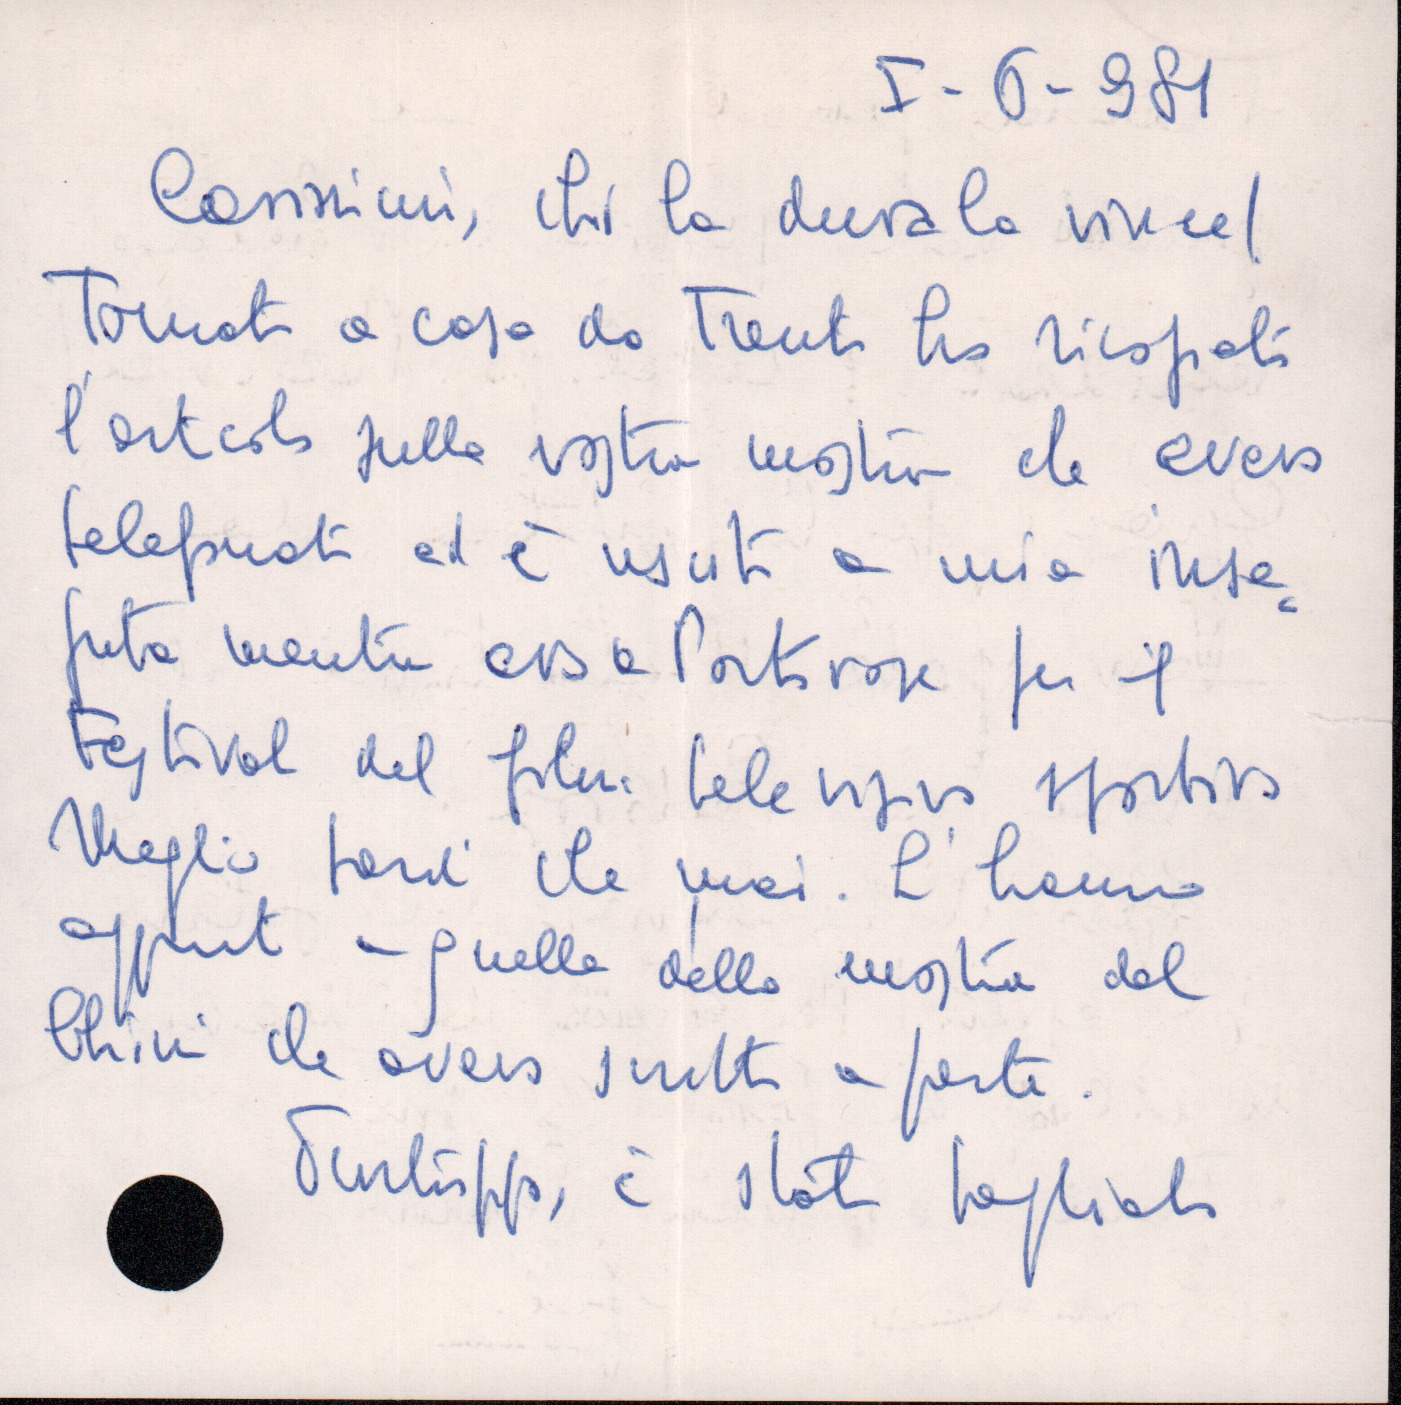 I-6-981
Carissimi, chi la dura la vince!
Tornato a casa da Trento ho ricopiato
l'articolo sulla vostra mostra che avevo
telefonato ed è uscito a mia insa=
puta mentre ero a Portorose per il
Festival del film televisivo sportivo
Meglio tardi che mai. L'hanno
a quella della mostra del
Chini che avevo scritto a parte.
Purtroppo, è stato tagliato